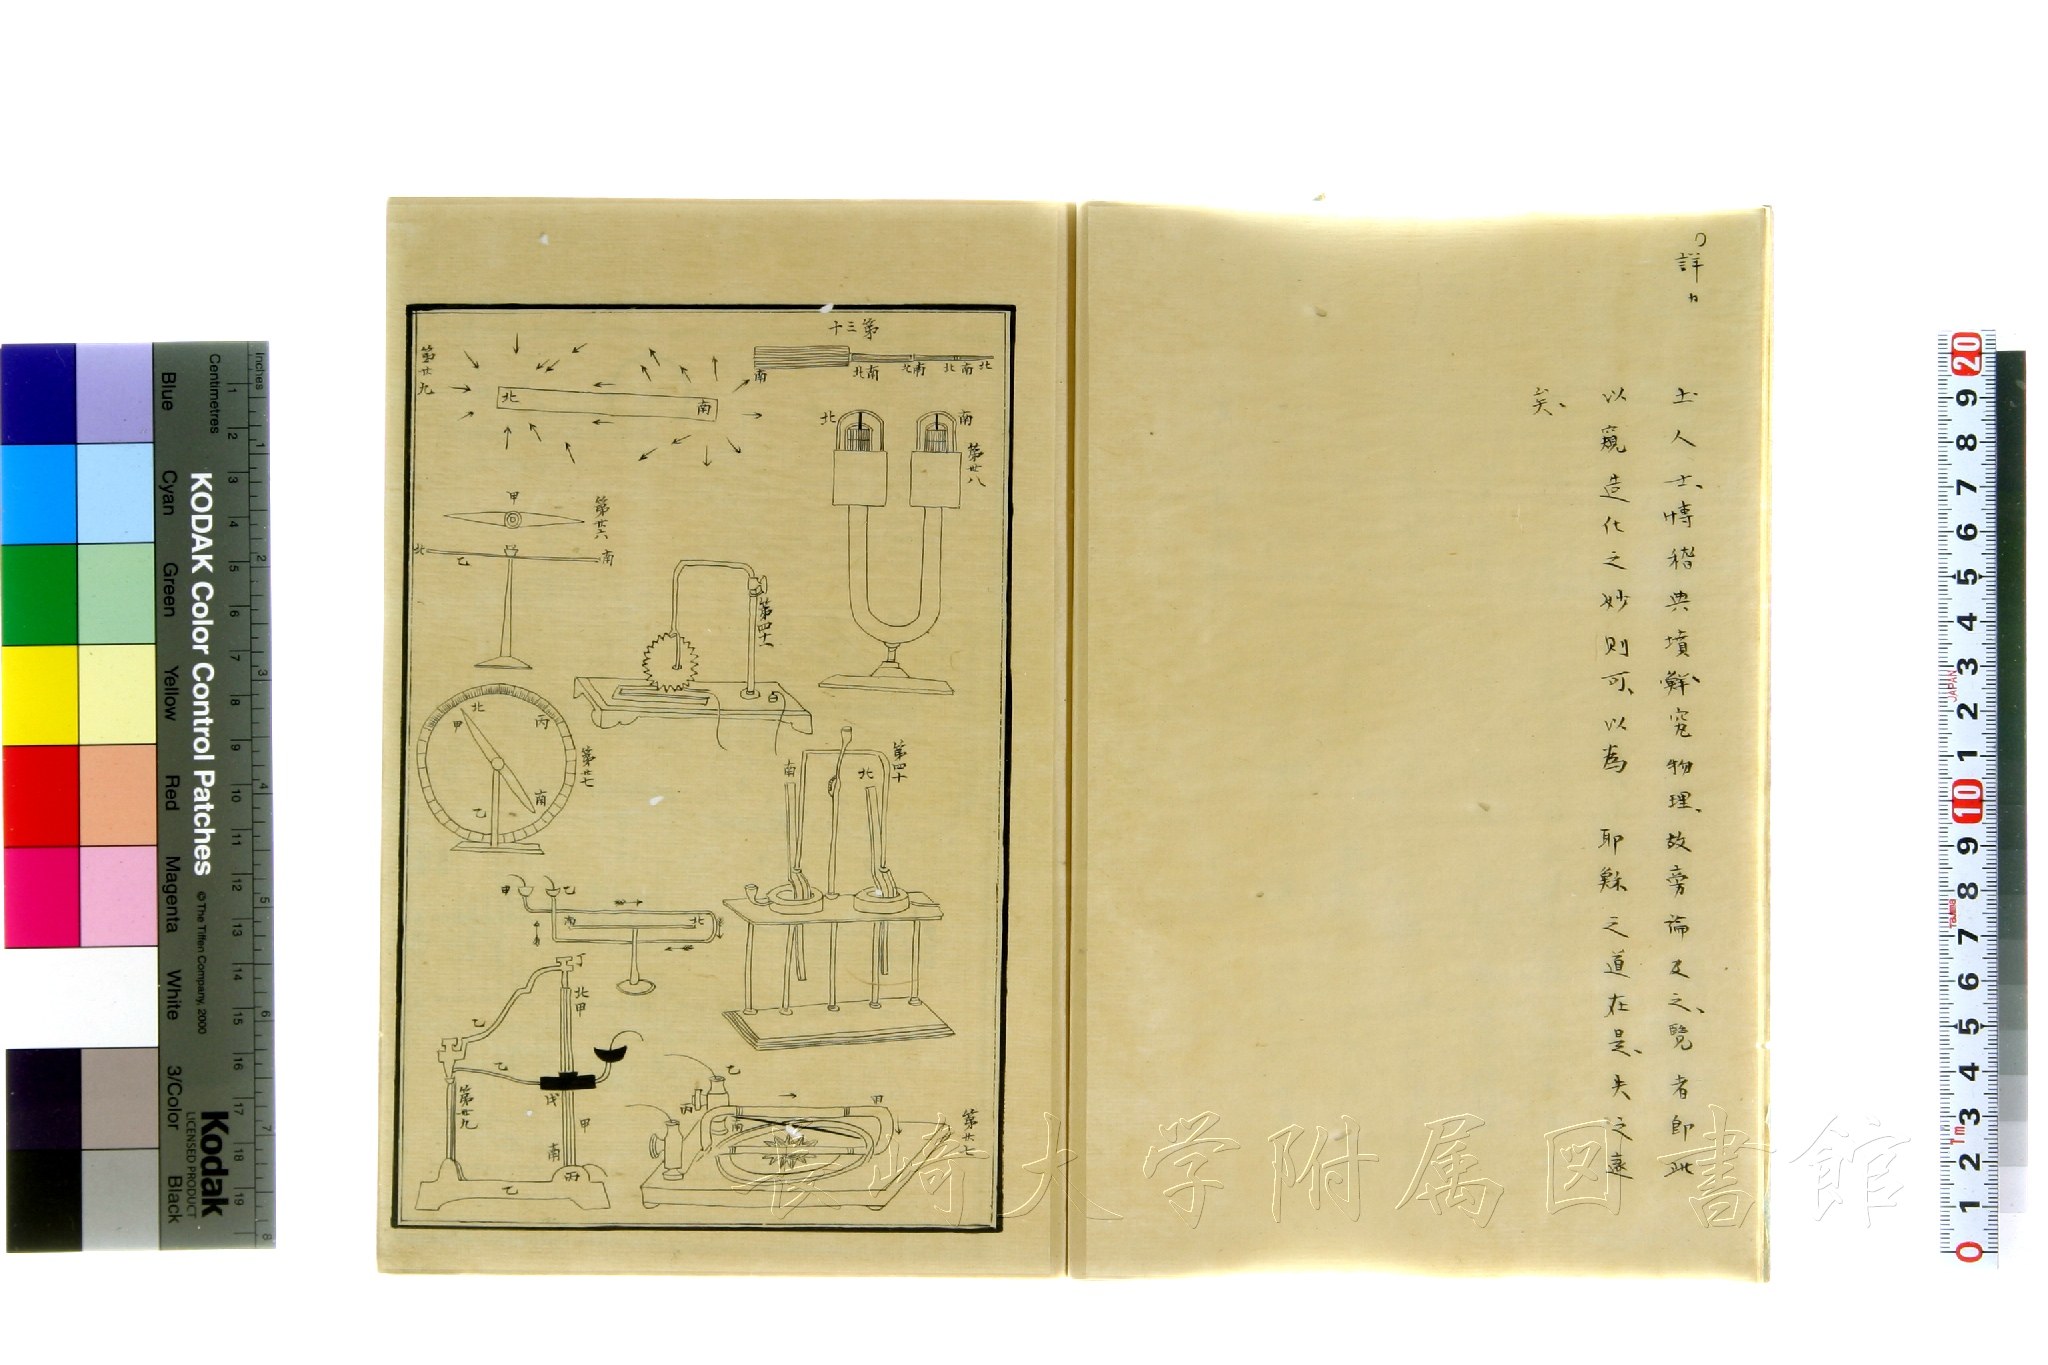 詳カ
土人士、博稽典墳、鮮究物理、故旁論及之、覽者即此
以窺造化之妙則可、以為 耶穌之道在是、失之遠
矣、
第三十
南
北南
北南
北南北
第廿九
北
南
北
南
第廿八
第廿六
甲
北
乙
南
第四十一
第廿七
北
丙
甲
乙
南
第四十
南
北
甲
乙
南
北
丁
北甲
乙
乙
戊
甲
南
丙
乙
第廿九
第廿七
乙
丙
甲
南
長崎大学附属図書館
KODAK Color Control Patches
© The Tiffen Company, 2000
Kodak
LICENSED PRODUCT
Inches
Centimetres
Blue
Cyan
Green
Yellow
Red
Magenta
White
3/Color
Black
1 2 3 4 5 6 7 8
1 2 3 4 5 6 7 8 9 10 11 12 13 14 15 16 17 18 19
20 9 8 7 6 5 4 3 2 1 10 9 8 7 6 5 4 3 2 1 0
JAPAN